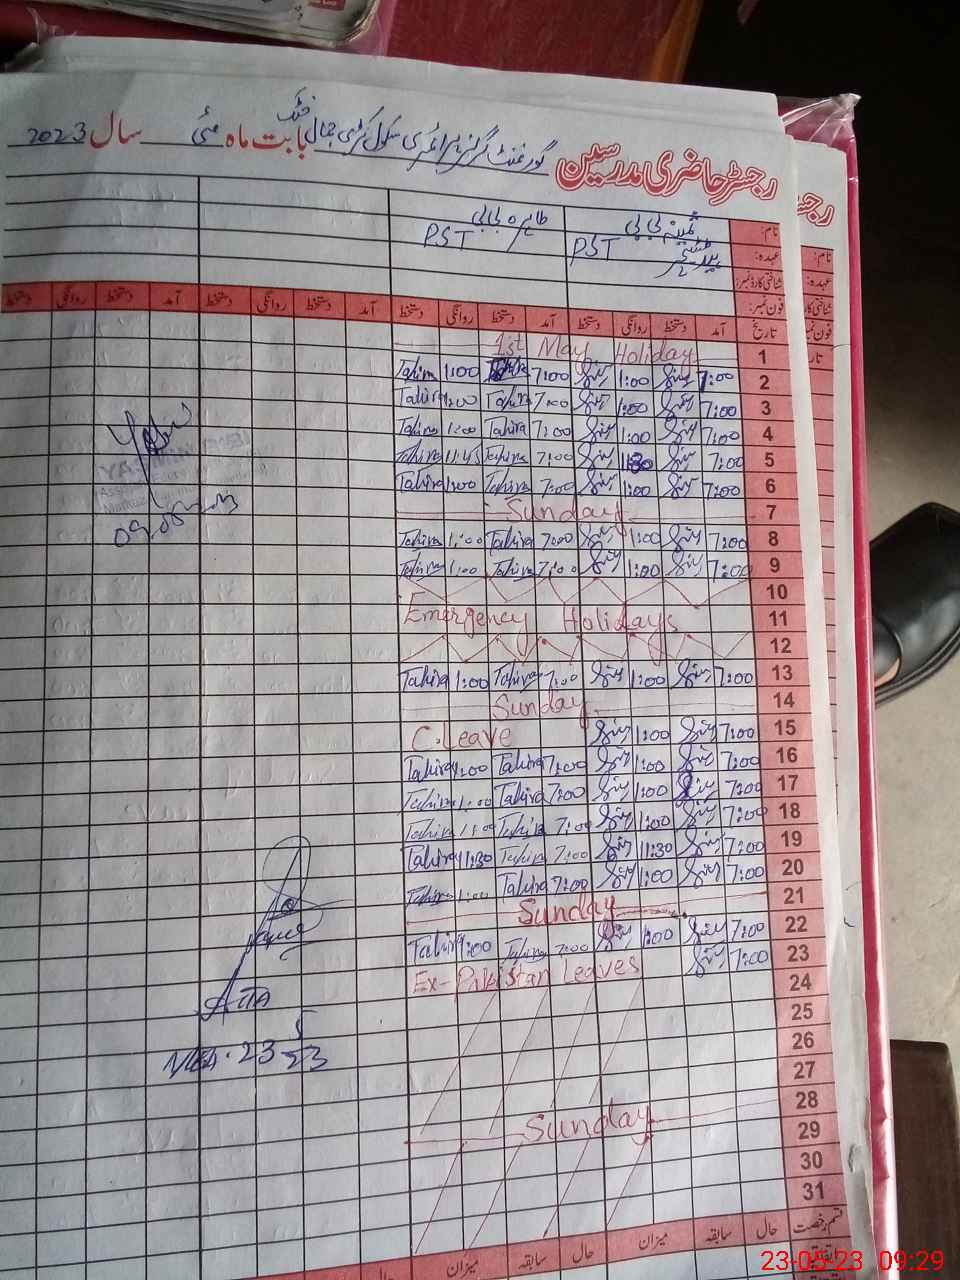 رجسٹر حاضری مدرسین گورنمنٹ گرلز پرائمری سکول کرڑی جمال خٹک بابت ماہ مئی سال 2023
نام: ثمینہ بی بی طاہرہ بی بی
عہدہ: PST PST
شناختی کارڈ نمبر:
فون نمبر:
تاریخ آمد دستخط روانگی دستخط آمد دستخط روانگی دستخط آمد دستخط روانگی دستخط آمد دستخط روانگی دستخط
1 1st May Holiday
2 7:00 1:00 7:00 Tahira 1:00 Tahira
3 7:00 1:00 7:00 Tahira 1:00 Tahira
4 7:00 1:00 7:00 Tahira 1:00 Tahira
5 7:00 11:30 7:00 Tahira 11:45 Tahira
6 7:00 1:00 7:00 Tahira 1:00 Tahira
7 Sunday
8 7:00 1:00 7:00 Tahira 1:00 Tahira
9 7:00 1:00 7:00 Tahira 1:00 Tahira
10
11 Emergency Holidays
12
13 7:00 1:00 7:00 Tahira 1:00 Tahira
14 Sunday
15 7:00 1:00 C.Leave
16 7:00 1:00 7:00 Tahira 1:00 Tahira
17 7:00 1:00 7:00 Tahira 1:00 Tahira
18 7:00 1:00 7:00 Tahira 1:00 Tahira
19 7:00 11:30 7:00 Tahira 11:30 Tahira
20 7:00 1:00 7:00 Tahira 1:00 Tahira
21 Sunday
22 7:00 1:00 7:00 Tahira 1:00 Tahira
23 7:00 Ex-Pakistan Leaves
24
25
26
27
28 Sunday
29
30
31
قسم رخصت حال سابقہ میزان حال سابقہ میزان حال
YASMIN BIBI
09.05.2023
23 5 23
23-05-23 09:29